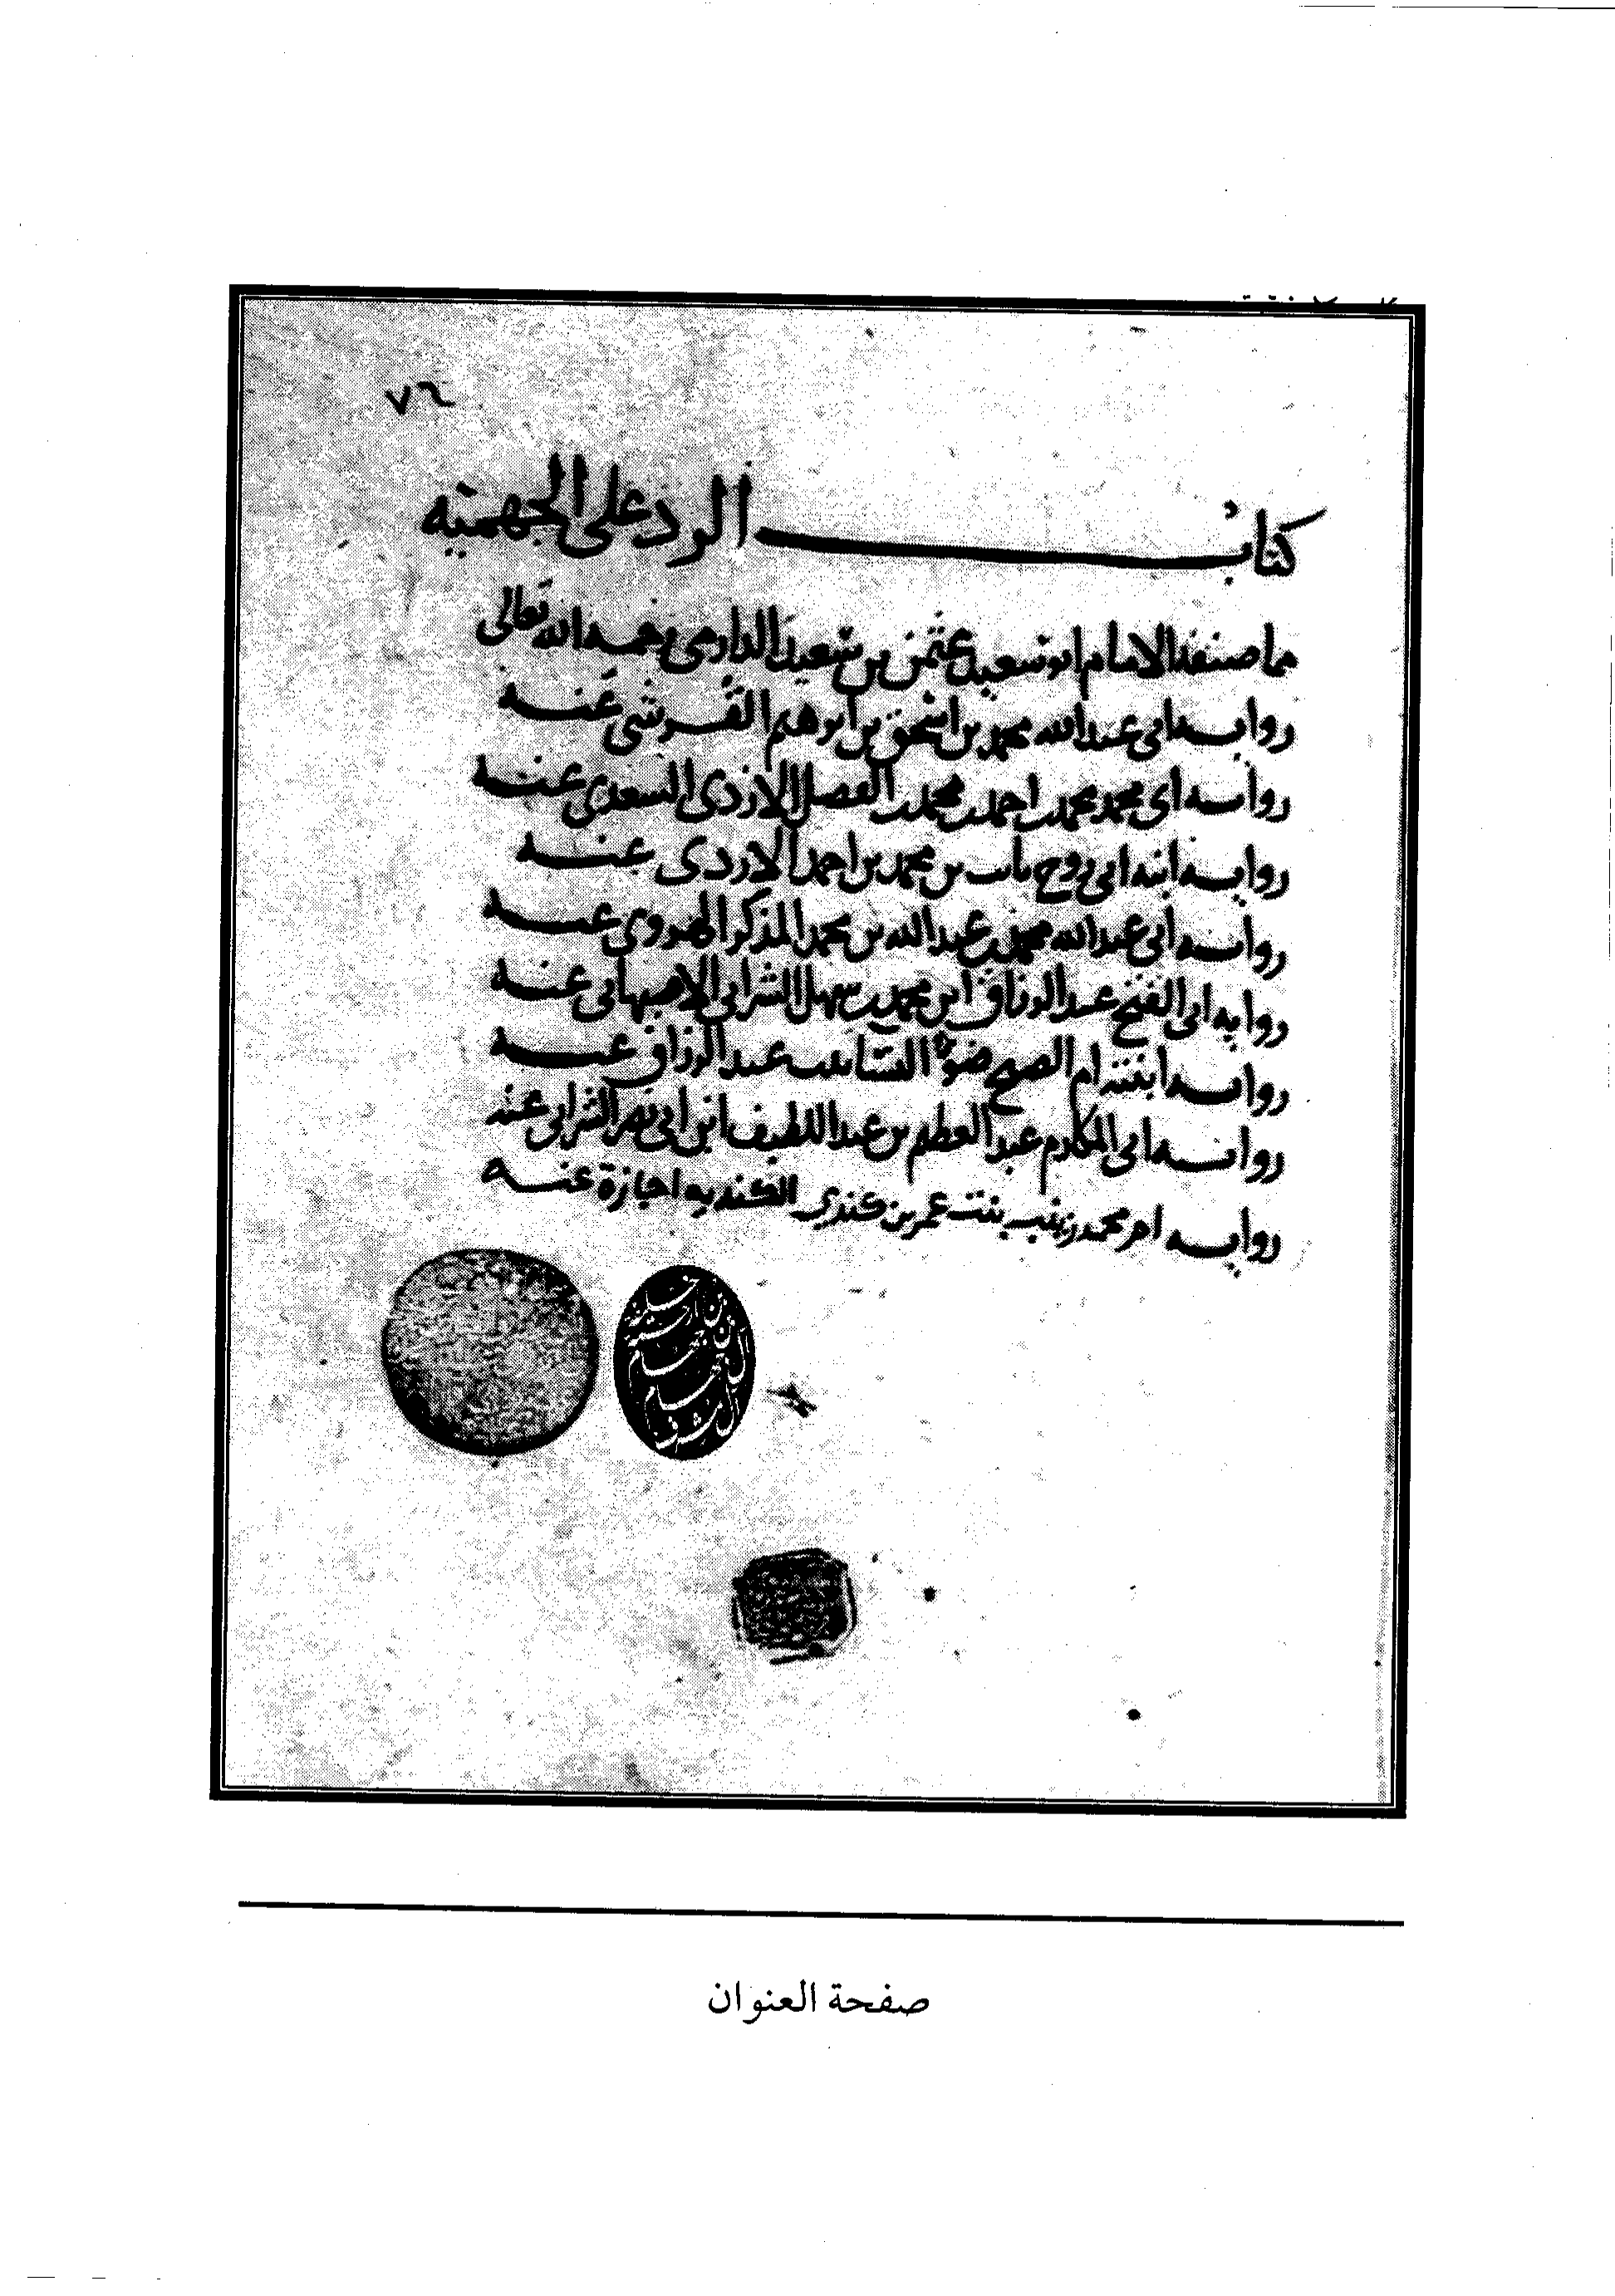 ٧٦
كتاب الرد على الجهمية
مما صنفه الامام ابو سعيد عثمن بن سعيد الدارمى رحمه الله تعالى
رواية ابى عبد الله محمد بن اسحق بن ابرهيم القرشى عنه
رواية ابى محمد محمد بن احمد بن محمد بن الفضل الازدى السعدى عنه
رواية ابنه ابى روح ثابت بن محمد بن احمد الازدى عنه
رواية ابى عبد الله محمد بن عبد الله بن محمد المذكر الهروي عنه
رواية ابى الفتح عبد الرزاق ابن محمد بن سهل الشرابى الاصبهانى عنه
رواية ابنته ام الصبح ضوء النساء بنت عبد الرزاق عنه
رواية ابى المكارم عبد العظيم بن عبد اللطيف ابن ابى نصر الشرابى عنه
رواية ام محمد زينب بنت عمر بن كندي الكنديه اجازة عنه
صفحة العنوان